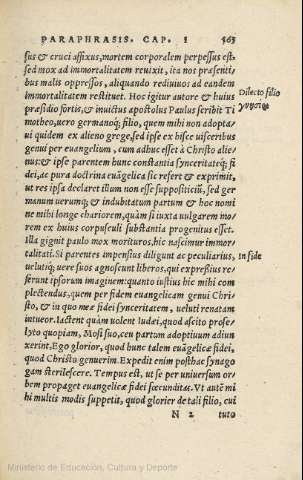 PARAPHRASIS. CAP. I 563
sus & cruci affixus, mortem corporalem perpessus est,
sed mox ad immortalitatem reuixit, ita nos præsenti/
bus malis oppressos, aliquando rediuiuos ad eandem
immortalitatem restituet. Hoc igitur autore & huius
præsidio fortis, & inuictus apostolus Paulus scribit Ti
motheo, uero germanoq; filio, quem mihi non adopta/
ui quidem ex alieno grege, sed ipse ex hisce uisceribus
genui per euangelium, cum adhuc esset à Christo alie/
nus: & ipse parentem hunc constantia synceritateq; fi
dei, ac pura doctrina euāgelica sic refert & exprimit,
ut res ipsa declaret illum non esse supposititiū, sed ger
manum uerumq; & indubitatum partum & hoc nomi
ne mihi longe chariorem, quàm si iuxta uulgarem mo/
rem ex huius corpusculi substantia progenitus esset.
Illa gignit paulo mox morituros, hic nascimur immor/
talitati. Si parentes impensius diligunt ac peculiarius,
uelutiq; uere suos agnoscunt liberos, qui expressius re/
ferunt ipsorum imaginem: quanto iustius hic mihi com
plectendus, quem per fidem euangelicam genui Chri/
sto, & in quo meæ fidei synceritatem, ueluti renatam
intueor. Iactent quàm uolent Iudæi, quod ascito prose/
lyto quopiam, Mosi suo, ceu partum adoptiuum adiun
xerint. Ego glorior, quod hunc talem euāgelicæ fidei,
quod Christo genuerim. Expedit enim posthac synago
gam sterilescere. Tempus est, ut se per uniuersum or/
bem propaget euangelicæ fidei fœcunditas. Vt autē mi
hi multis modis suppetit, quod glorier de tali filio, cui
N 2 tuto
Dilecto filio
γνησίῳ
In fide
Ministerio de Educación, Cultura y Deporte